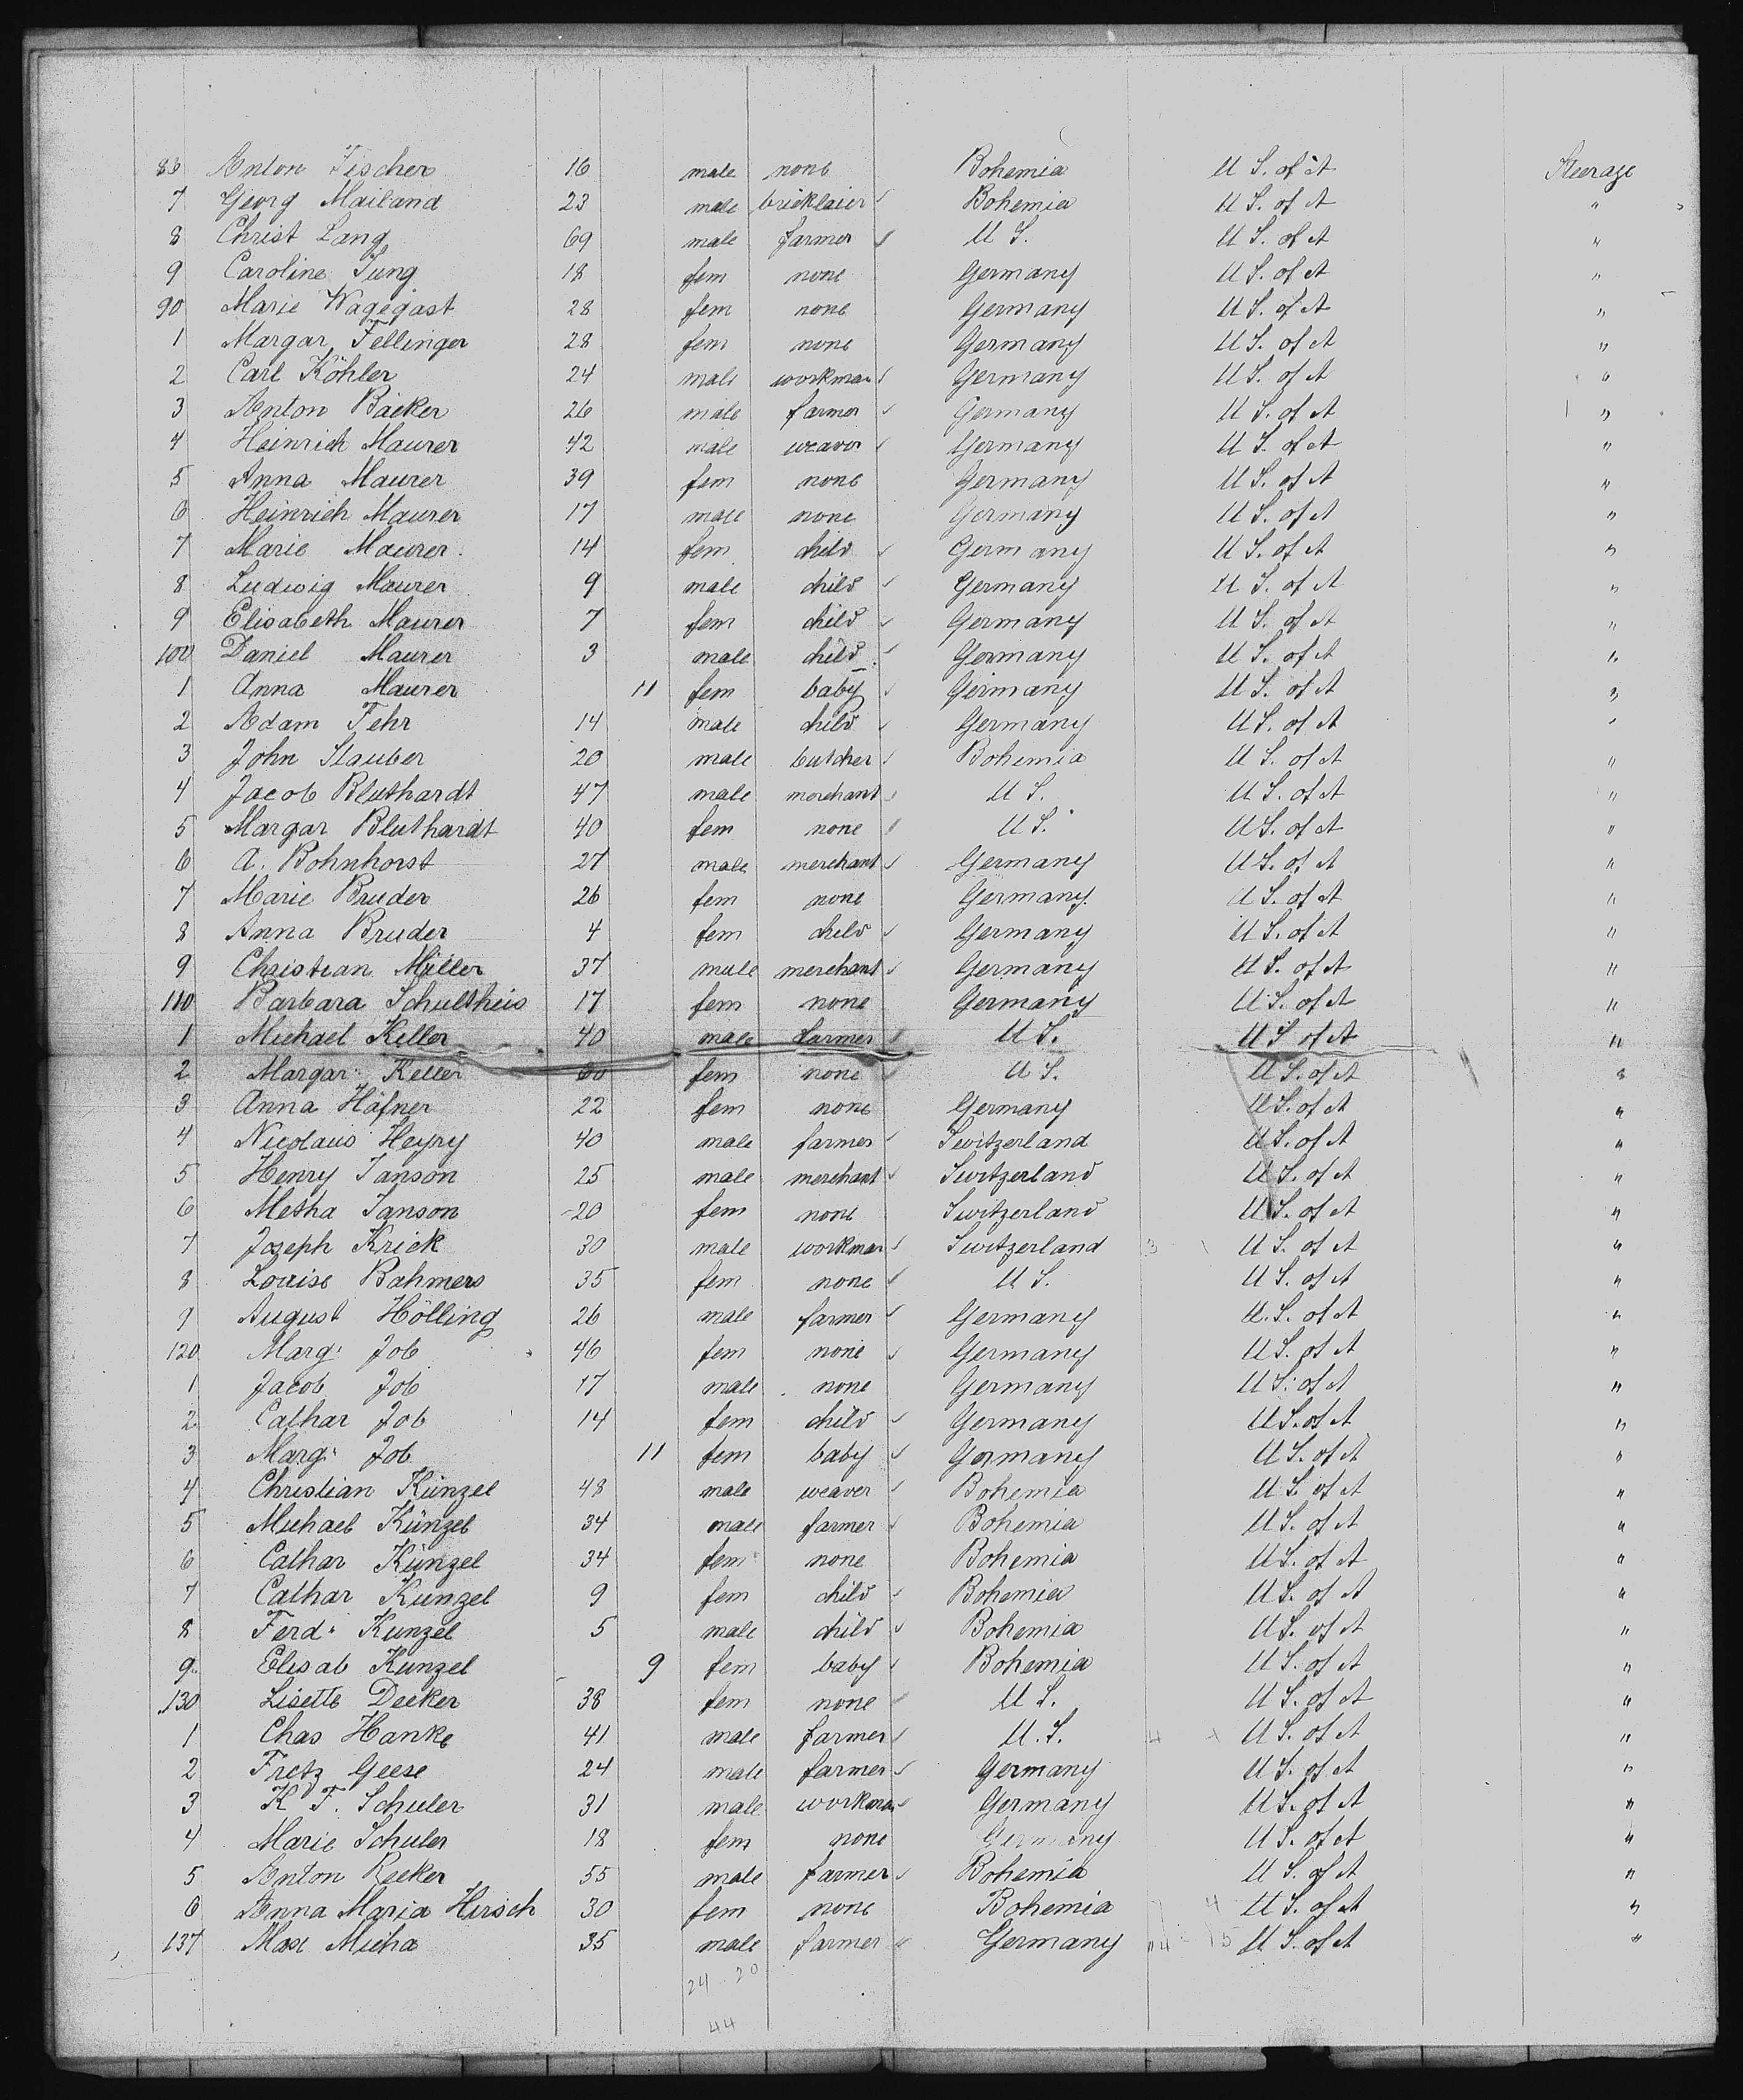 86 Anton Fischer 16 male none Bohemia U S. of A Steerage
7 Georg Mailand 23 male bricklaier Bohemia U S. of A "
8 Christ Lang 69 male farmer U S. U S. of A "
9 Caroline Jung 18 fem none Germany U S. of A "
90 Marie Wagegast 28 fem none Germany U S. of A "
1 Margar. Fellinger 28 fem none Germany U S. of A "
2 Carl Köhler 24 male workman Germany U S. of A "
3 Anton Bäcker 26 male farmer Germany U S. of A "
4 Heinrich Maurer 42 male weaver Germany U S. of A "
5 Anna Maurer 39 fem none Germany U S. of A "
6 Heinrich Maurer 17 male none Germany U S. of A "
7 Marie Maurer 14 fem child Germany U S. of A "
8 Ludwig Maurer 9 male child Germany U S. of A "
9 Elisabeth Maurer 7 fem child Germany U S. of A "
100 Daniel Maurer 3 male child Germany U S. of A "
1 Anna Maurer 11 fem baby Germany U S. of A "
2 Adam Fehr 14 male child Germany U S. of A "
3 John Stauber 20 male butcher Bohemia U S. of A "
4 Jacob Bluthardt 47 male merchant U S. U S. of A "
5 Margar Bluthardt 40 fem none U S. U S. of A "
6 A. Bohnhorst 27 male merchant Germany U S. of A "
7 Marie Bruder 26 fem none Germany U S. of A "
8 Anna Bruder 4 fem child Germany U S. of A "
9 Christian Müller 37 male merchant Germany U S. of A "
110 Barbara Schultheis 17 fem none Germany U S. of A "
1 Michael Keller 40 male farmer U S. U S of A "
2 Margar. Keller 60 fem none U S. U S. of A "
3 Anna Häfner 22 fem none Germany U S. of A "
4 Nicolaus 40 male farmer Switzerland U S. of A "
5 Henry Janson 25 male merchant Switzerland U S. of A "
6 Metha Janson 20 fem none Switzerland U S. of A "
7 Joseph Krick 30 male workman Switzerland 3 1 U S. of A "
8 Louise Bahmers 35 fem none U S. U S. of A "
9 August Hölling 26 male farmer Germany U. S. of A "
120 Marg. Job 46 fem none Germany U S. of A "
1 Jacob Job 17 male none Germany U S. of A "
2 Cathar Job 14 fem child Germany U S. of A "
3 Marg. Job 11 fem baby Germany U S. of A "
4 Christian Künzel 48 male weaver Bohemia U S. of A "
5 Michael Künzel 34 male farmer Bohemia U S. of A "
6 Cathar Künzel 34 fem none Bohemia U S. of A "
7 Cathar Kunzel 9 fem child Bohemia U S. of A "
8 Ferd. Kunzel 5 male child Bohemia U S. of A "
9 Elisab Kunzel 9 fem baby Bohemia U S. of A "
130 Lisette Decker 38 fem none U S. U S. of A "
1 Chas Hanke 41 male farmer U. S. 4 U S. of A "
2 Fretz Geese 24 male farmer Germany U S. of A "
3 K F. Schuler 31 male workman Germany U S. of A "
4 Marie Schuler 18 fem none Germany U S. of A "
5 Anton Recker 55 male farmer Bohemia U S. of A "
6 Anna Maria Hirsch 30 fem none Bohemia 4 U S. of A "
137 Max Micha 35 male farmer Germany 15 U S. of A "
24 20
44